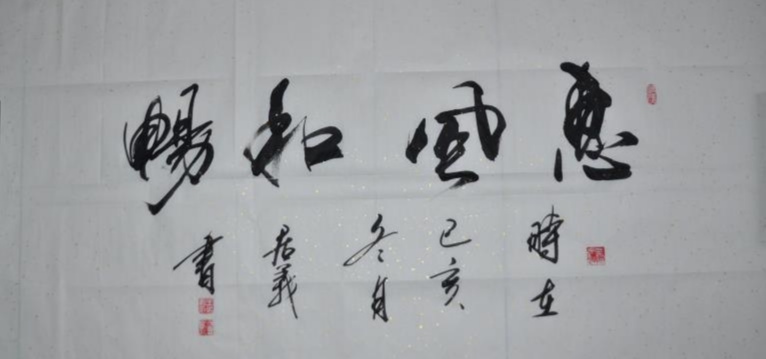 惠風和暢
時在
己亥
冬月
居義
書